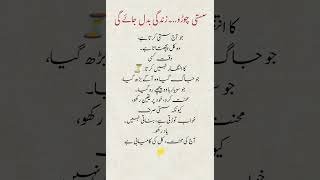 سستی چھوڑو...زندگی بدل جائے گی
جو آج سستی کرتا ہے،
وہ کل پچھتاتا ہے۔
وقت کسی
کا انتظار نہیں کرتا ⏳
جو جاگ گیا وہ آگے بڑھ گیا،
جو سویا رہا وہ پیچھے رہ گیا۔
محنت کرو، خود پر یقین رکھو،
کیونکہ سستی صرف
خواب توڑتی ہے، بناتی نہیں۔
یاد رکھو۔
آج کی محنت، کل کی کامیابی ہے